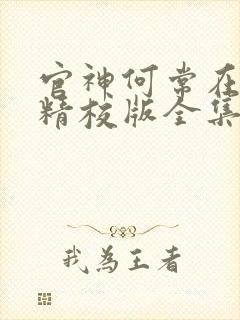 官神何常在
精校版全集
我为王者